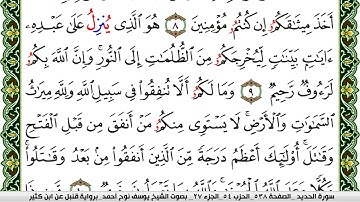 أَخَذَ مِيثَٰقَكُمُۥٓ إِن كُنتُمُۥ مُؤْمِنِينَ ٨ هُوَ ٱلَّذِى يُنزِلُ عَلَىٰ عَبْدِهِۦٓ
ءَايَٰتِۭ بَيِّنَٰتٍ لِّيُخْرِجَكُمُۥ مِنَ ٱلظُّلُمَٰتِ إِلَى ٱلنُّورِ ۚ وَإِنَّ ٱللَّهَ بِكُمُۥ
لَرَءُوفٌ رَّحِيمٌ ٩ وَمَا لَكُمُۥٓ أَلَّا تُنفِقُوا۟ فِى سَبِيلِ ٱللَّهِ وَلِلَّهِ مِيرَٰثُ
ٱلسَّمَٰوَٰتِ وَٱلْأَرْضِ ۚ لَا يَسْتَوِى مِنكُمُۥ مَّنْ أَنفَقَ مِن قَبْلِ ٱلْفَتْحِ
وَقَٰتَلَ ۚ أُو۟لَٰٓئِكَ أَعْظَمُ دَرَجَةً مِّنَ ٱلَّذِينَ أَنفَقُوا۟ مِنۢ بَعْدُ وَقَٰتَلُوا۟ ۚ
سورة الحديد الصفحة ٥٣٨ الحزب ٥٤ الجزء ٢٧ بصوت الشيخ يوسف نوح أحمد برواية قنبل عن ابن كثير